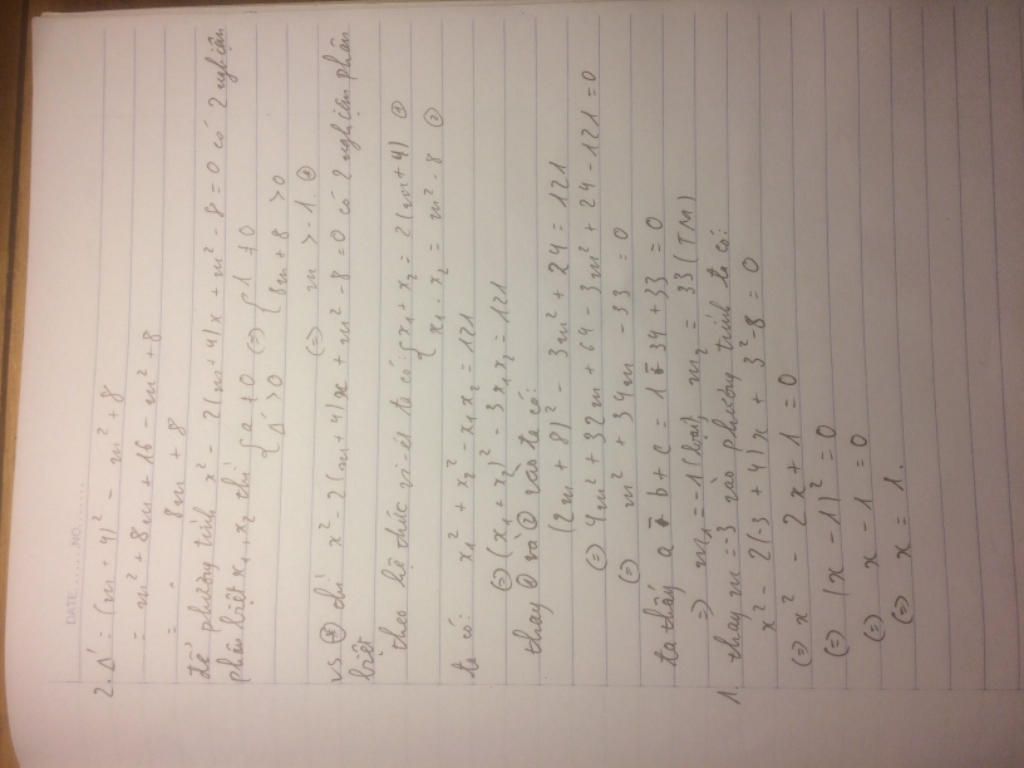 DATE..........NO..........
2. Δ' = (m + 4)² - m² + 8
= m² + 8m + 16 - m² + 8
= 8m + 8
để phương trình x² - 2(m+4)x + m² - 8 = 0 có 2 nghiệm
phân biệt x₁, x₂ thì { a ≠ 0 (=) { 1 ≠ 0
Δ' > 0 8m + 8 > 0
(=) m > -1. (*)
vs (*) thì x² - 2(m+4)x + m² - 8 = 0 có 2 nghiệm phân
biệt
theo hệ thức vi-ét ta có: { x₁ + x₂ = 2(m+4) ①
x₁ . x₂ = m² - 8 ②
ta có: x₁² + x₂² - x₁x₂ = 121
(=) (x₁ + x₂)² - 3x₁x₂ = 121
thay ① và ② vào ta có:
(2m + 8)² - 3m² + 24 = 121
(=) 4m² + 32m + 64 - 3m² + 24 - 121 = 0
(=) m² + 34m - 33 = 0
ta thấy a - b + c = 1 - 34 + 33 = 0
=) m₁ = -1 (loại) m₂ = 33 (TM)
1. thay m = -3 vào phương trình ta có:
x² - 2(-3 + 4)x + 3² - 8 = 0
(=) x² - 2x + 1 = 0
(=) (x - 1)² = 0
(=) x - 1 = 0
(=) x = 1.